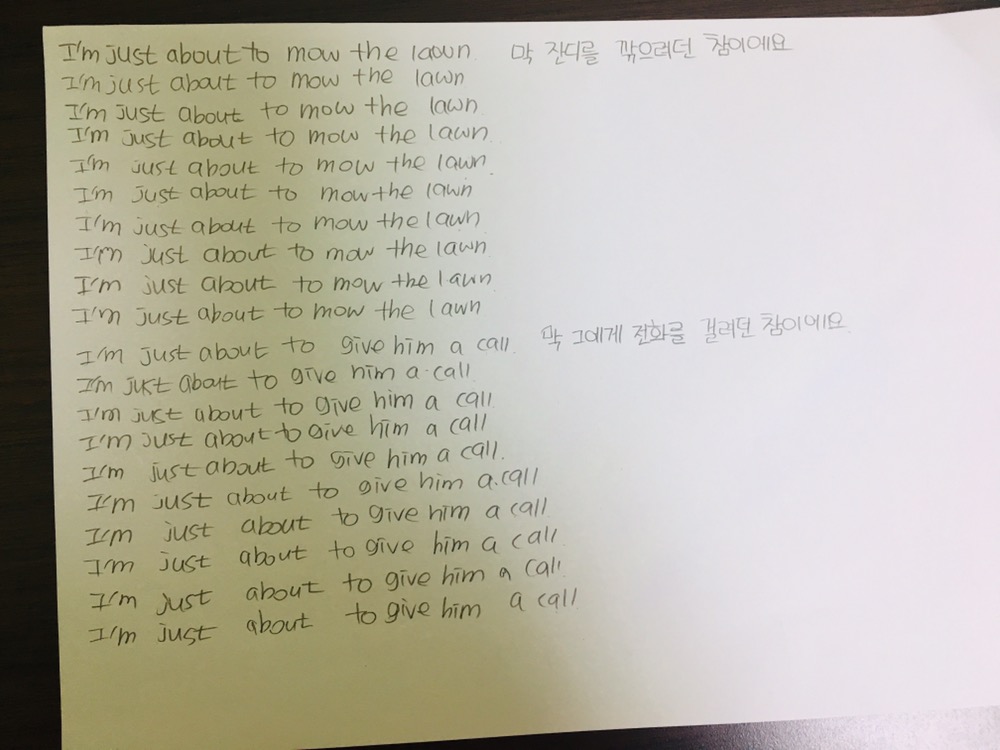 I'm just about to mow the lawn 막 잔디를 깎으려던 참이에요
I'm just about to mow the lawn
I'm just about to mow the lawn
I'm just about to mow the lawn.
I'm just about to mow the lawn.
I'm just about to mow the lawn
I'm just about to mow the lawn
I'm just about to mow the lawn
I'm just about to mow the lawn
I'm just about to mow the lawn
I'm just about to give him a call. 막 그에게 전화를 걸려던 참이에요.
I'm just about to give him a call
I'm just about to give him a call
I'm just about to give him a call
I'm just about to give him a call.
I'm just about to give him a call
I'm just about to give him a call
I'm just about to give him a call
I'm just about to give him a call
I'm just about to give him a call